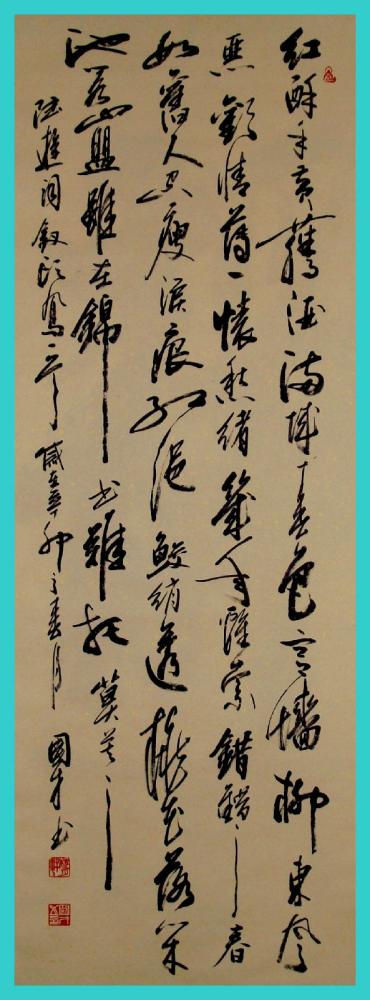 紅酥手黃藤酒滿城春色宮墻柳東風
惡歡情薄一懷愁緒幾年離索錯錯錯春
如舊人空瘦淚痕紅浥鮫綃透桃花落閑
池閣山盟雖在錦書難托莫莫莫
陸游詞釵頭鳳一首 歲在辛卯之春月 國才書